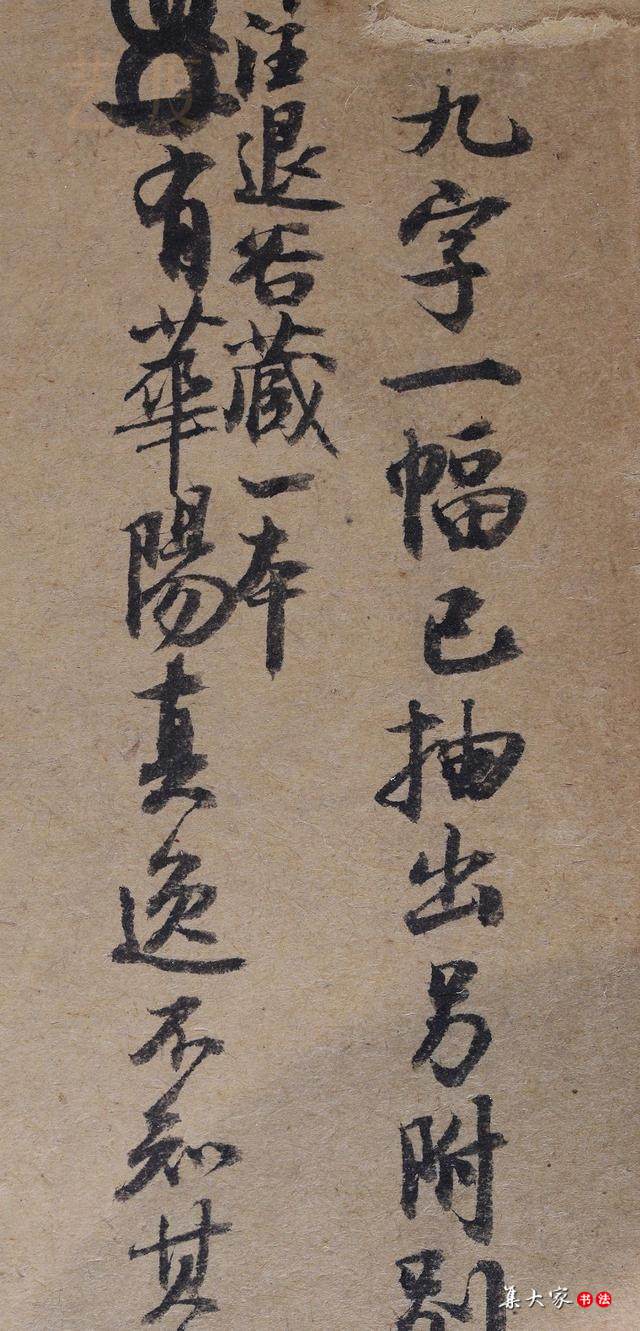 九字一幅已抽出另附别
注退谷藏一本
有華陽真逸不知其
集大家書法